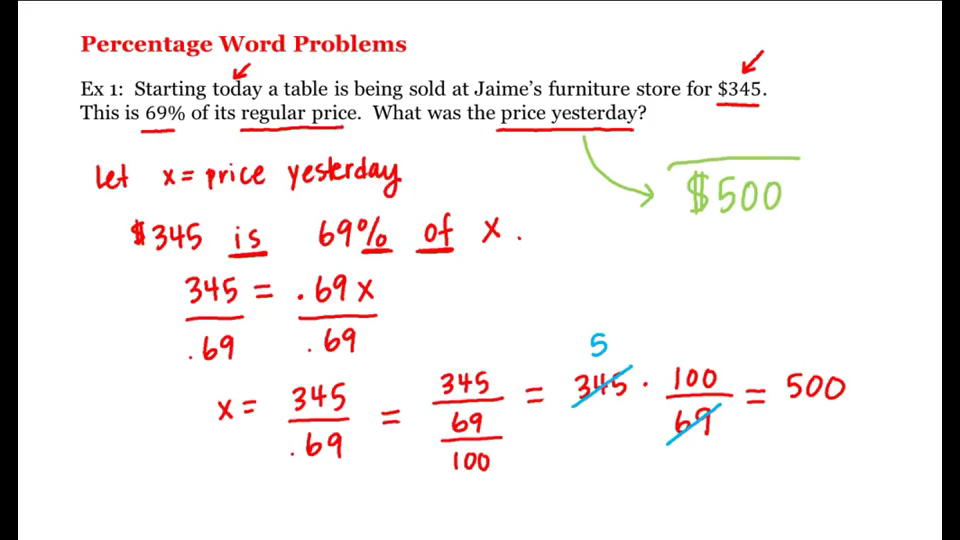 Percentage Word Problems
Ex 1: Starting today a table is being sold at Jaime's furniture store for $345.
This is 69% of its regular price. What was the price yesterday?
Let x = price yesterday
$500
$345 is 69% of x.
345 = .69x
.69 .69
5
x = 345/.69 = 345/(69/100) = 345 · 100/69 = 500